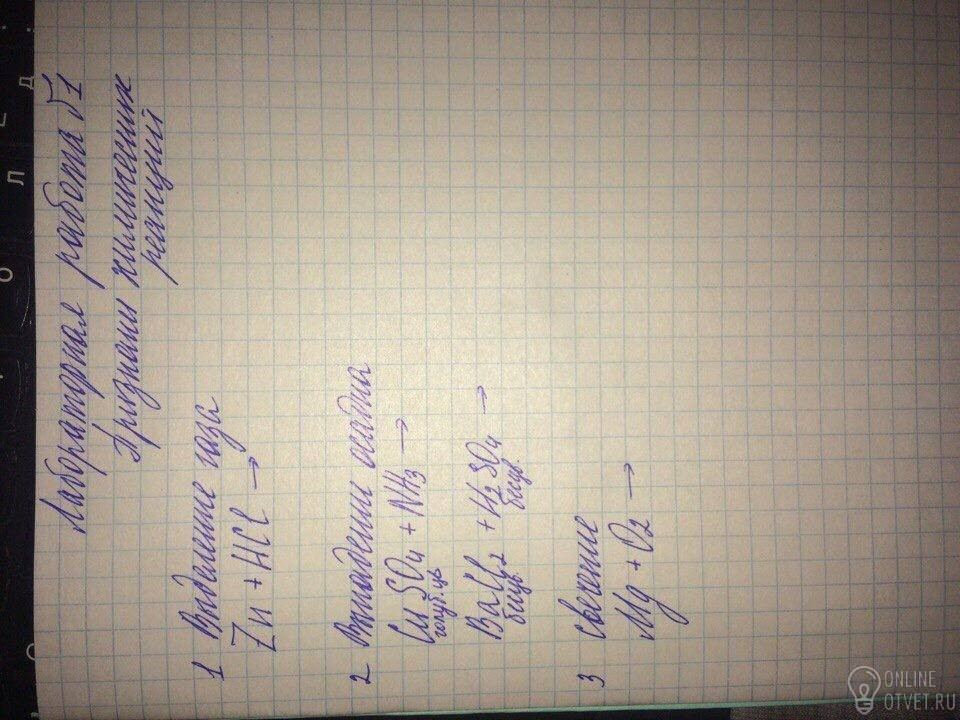 Лабораторная работа №1
Признаки химических
реакций
1 Выделение газа
Zn + HCl →
2 Выпадение осадка
CuSO₄ + NH₃ →
голуб. цв
BaCl₂ + H₂SO₄ →
бесцв бесцв.
3 Свечение
Mg + O₂ →
ONLINE
OTVET.RU